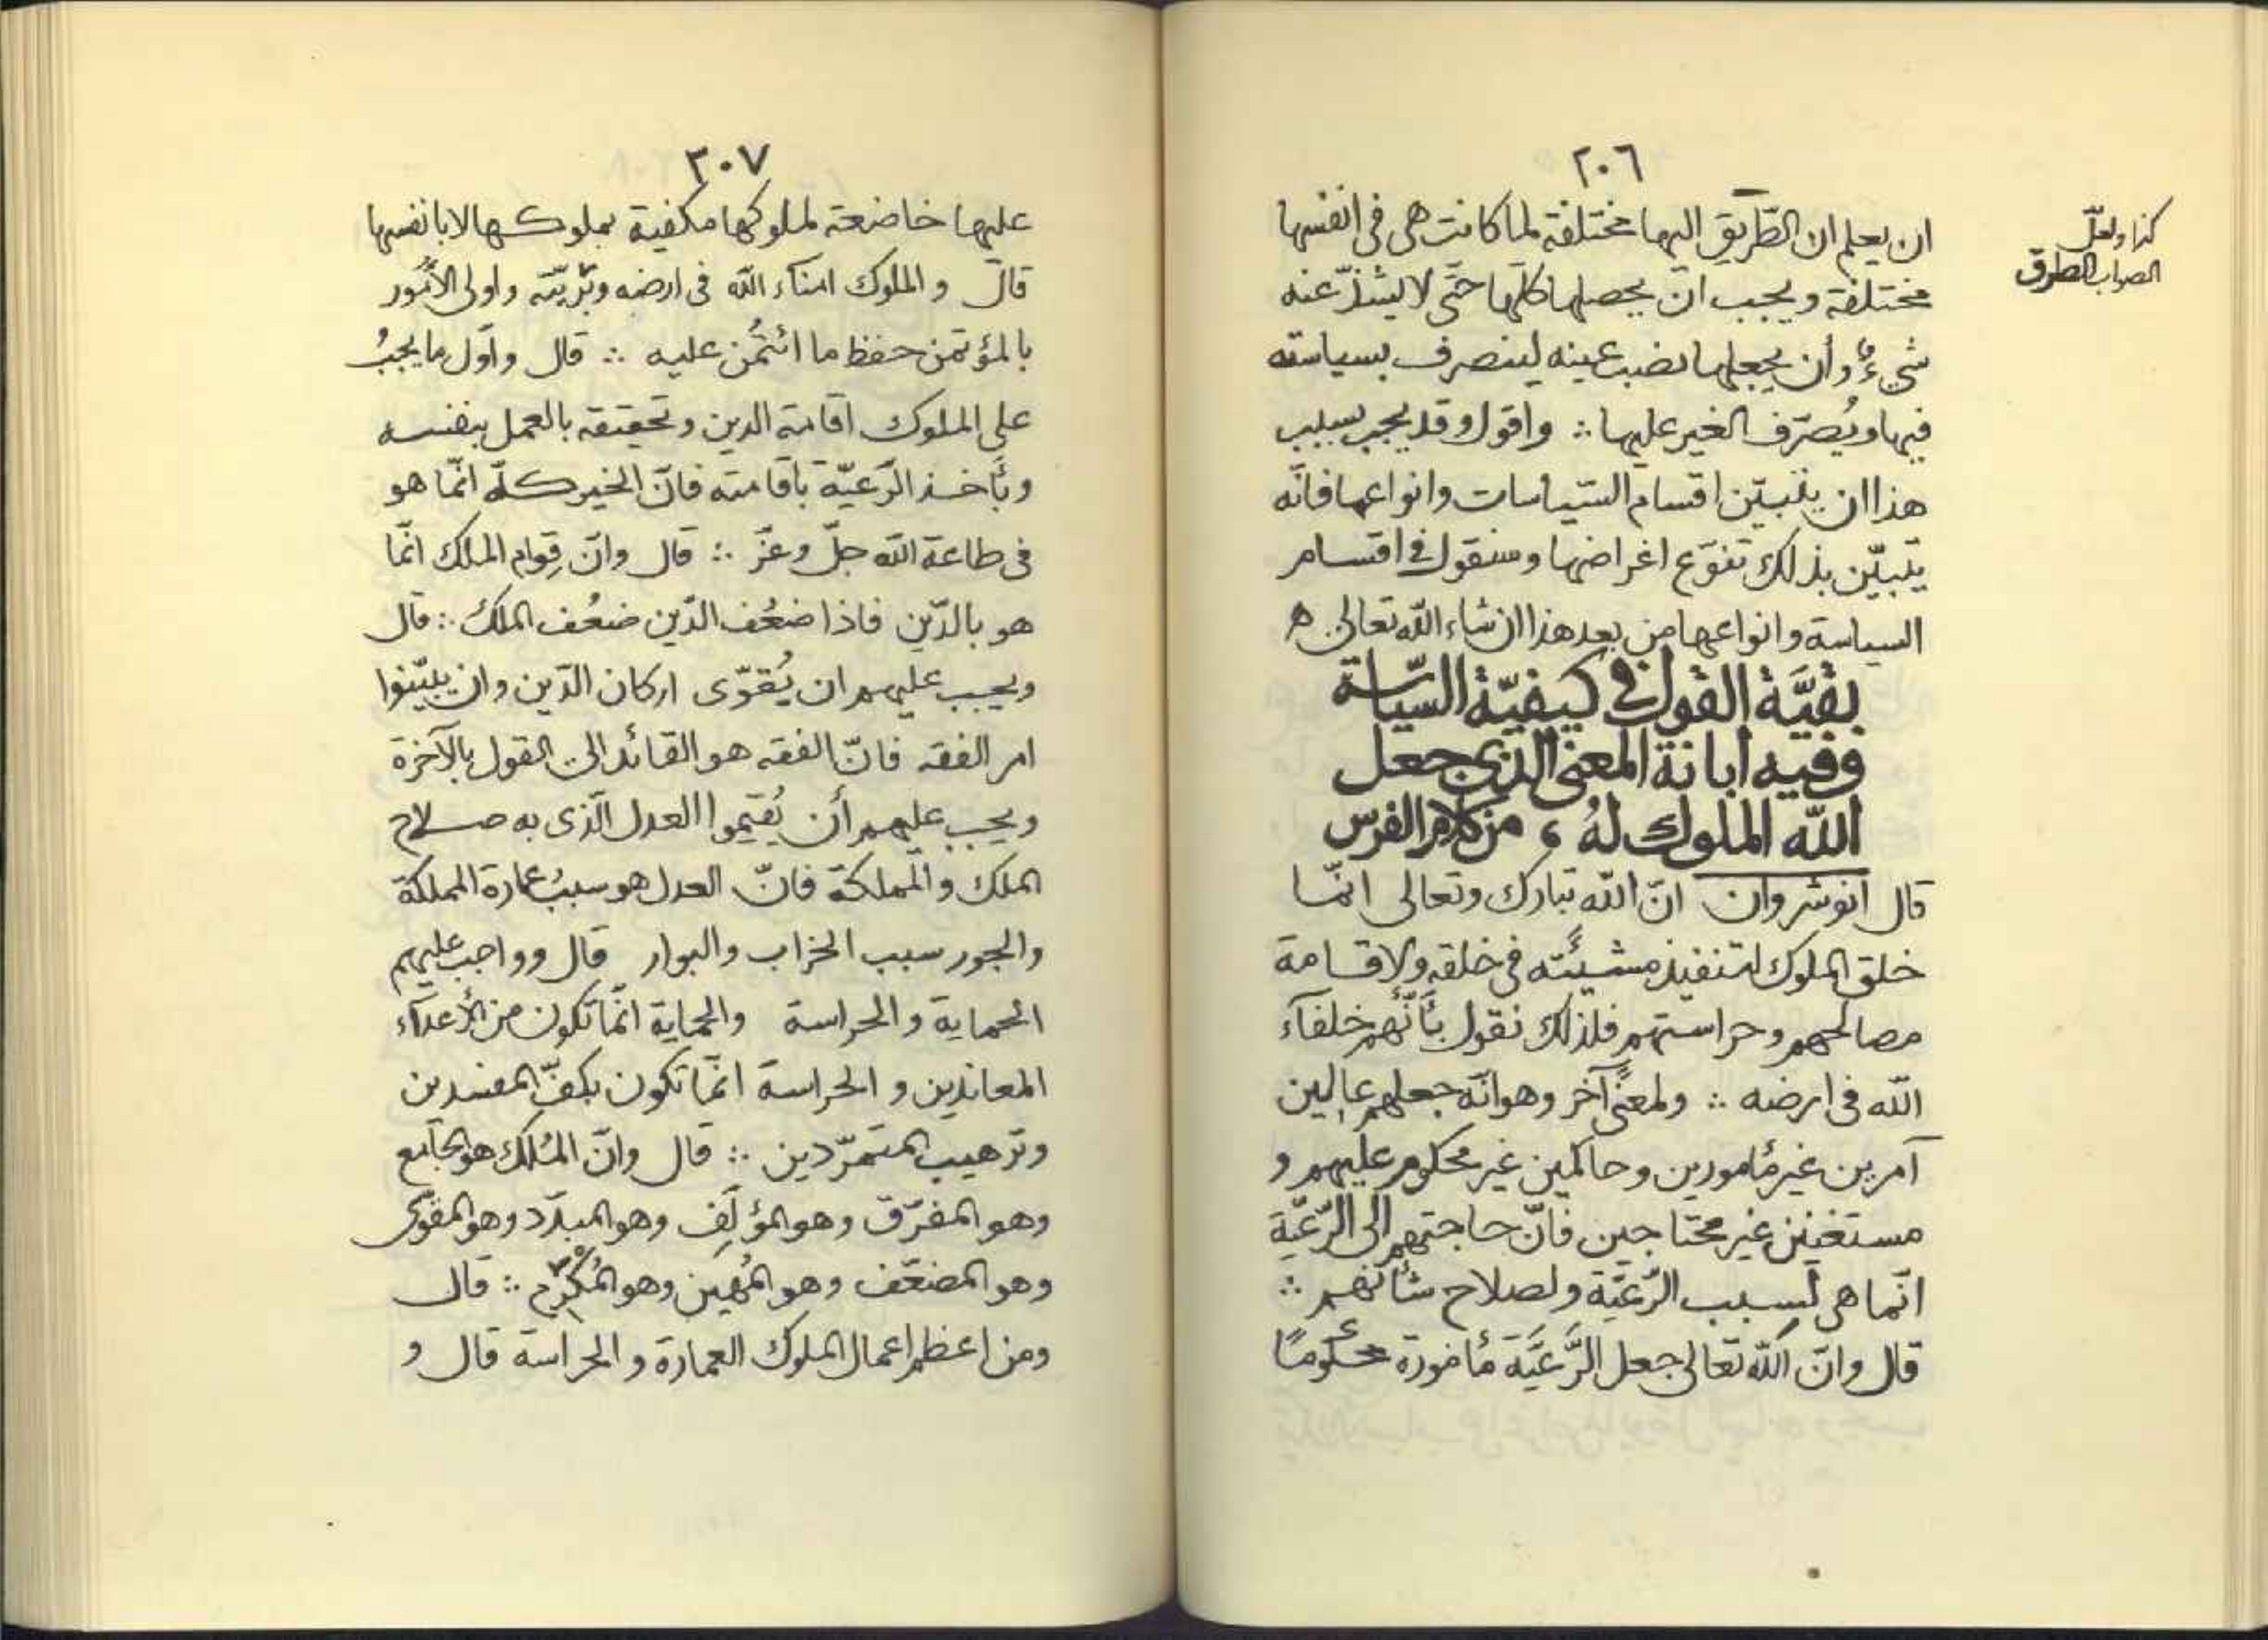 ٢٠٦
كذا ولعلّ
الصواب الطرق
ان يعلم ان الطّريق اليها مختلفة لما كانت هى فى انفسها
مختلفة ويجب ان يحصلها كلّها حتّى لا يشذّ عنه
شىءٌ وأن يجعلها نصب عينه لينصرف بسياسته
فيها ويُصرّف الغير عليها ∴ واقول وقد يجب بسبب
هذا ان يتبيّن اقسام السّياسات وانواعها فانّه
يتبيّن بذلك تنوّع اغراضها وسنقول فى اقسام
السياسة وانواعها من بعد هذا ان شاء اللّه تعالى ه
بقيَّة القول فى كيفيّة السّياسة
وفيه ابانة المعنى الذى جعل
اللّه الملوك لهُ ، من كلام الفرس
قال انوشروان انّ اللّه تبارك وتعالى انّما
خلق الملوك لتنفيذ مشيئته فى خلقه ولاقامة
مصالحهم وحراستهم فلذلك نقول بأنّهم خلفآء
اللّه فى ارضه ∴ ولمعنًى آخر وهو انّه جعلهم عالين
آمرين غير مأمورين وحاكمين غير محكوم عليهم و
مستغنين غير محتاجين فانّ حاجتهم الى الرّعيّة
انّما هى لسبب الرّعيّة ولصلاح شأنهم ∴
قال وانّ اللّه تعالى جعل الرَّعيَّة مأمورة محكومًا
٢٠٧
عليها خاضعة لملوكها مكفية بملوكها لا بانفسها
قال والملوك امناء اللّه فى ارضه وبريّته واولى الأمور
بالمؤتمن حفظ ما ائتُمن عليه ∴ قال واوّل ما يجبُ
على الملوك اقامة الدين وتحقيقه بالعمل بنفسه
وبأخذ الرّعيّة باقامته فانّ الخير كلّه انّما هو
فى طاعة اللّه جلّ وعزّ ∴ قال وانّ قِوام الملك انّما
هو بالدّين فاذا ضعُف الدّين ضعُف الملك ∴ قال
ويجب عليهم ان يُقوّى اركان الدّين وان يبيّنوا
امر الفقه فانّ الفقه هو القائد الى القول بالآخرة
ويجب عليهم أن يُقيموا العدل الّذى به صلاح
الملك والمملكة فانّ العدل هو سببُ عمارة المملكة
والجور سبب الخراب والبوار قال وواجب عليهم
الحماية والحراسة والحماية انّما تكون من الأعدآء
المعاندين والحراسة انّما تكون بكفّ المفسدين
وترهيب المتمرّدين ∴ قال وانّ المُلك هو الجامع
وهو المفرّق وهو المؤلِّف وهو المبدّد وهو المقوّى
وهو المضعّف وهو المُهين وهو المُكرّم ∴ قال
ومن اعظم اعمال الملوك العمارة والحراسة قال و